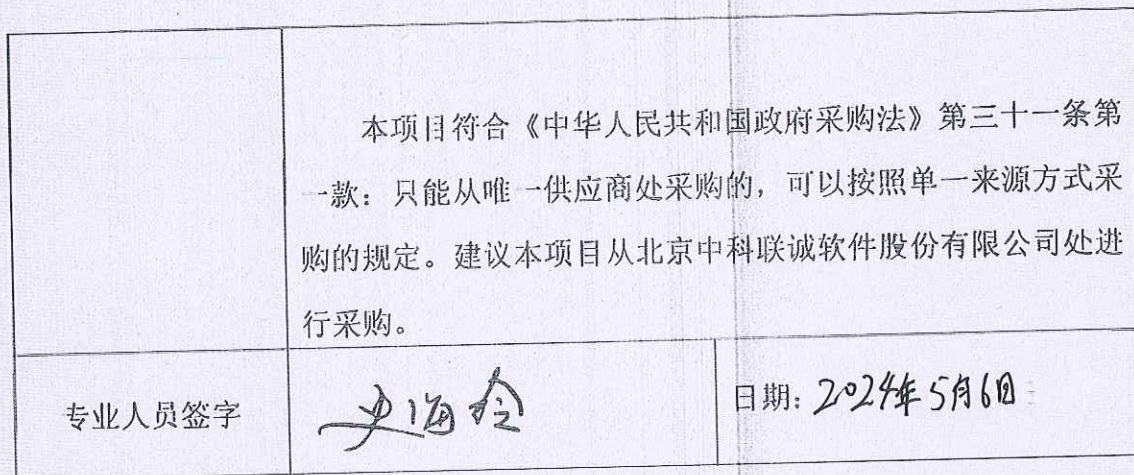 本项目符合《中华人民共和国政府采购法》第三十一条第
一款：只能从唯一供应商处采购的，可以按照单一来源方式采
购的规定。建议本项目从北京中科联诚软件股份有限公司处进
行采购。
专业人员签字 史海玲 日期：2024年5月6日